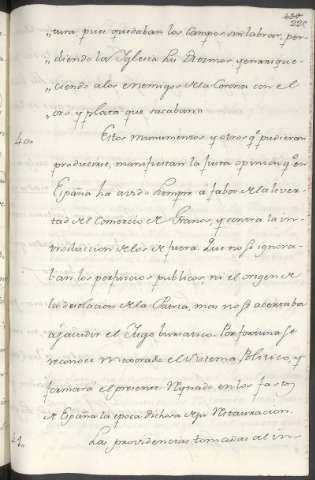 220
„tura pues quedaban los Campos sin labrar, per-
„diendo la Iglesia sus Diezmos y enrique-
„ciendo a los enemigos de la Corona con el
„oro y plata que sacaban„
40. Estos monumentos y otros q.e pudieran
producirse, manifiestan la justa opinion q.e en
España ha avido siempre a fabor de la liver-
tad del Comercio de Granos, y contra la in-
troduccion de los de fuera. Que no se ignora-
ban los perjuicios publicos, ni el origen de
la desolacion de la Patria, mas no se acertaba
a sacudir el Jugo bursatico. Por fortuna se
reconoce mejorado el Sistema Politico, y
formará el presente Reynado en los fastos
de España la epoca dichosa de su Restauracion.
41. Las providencias tomadas al in-